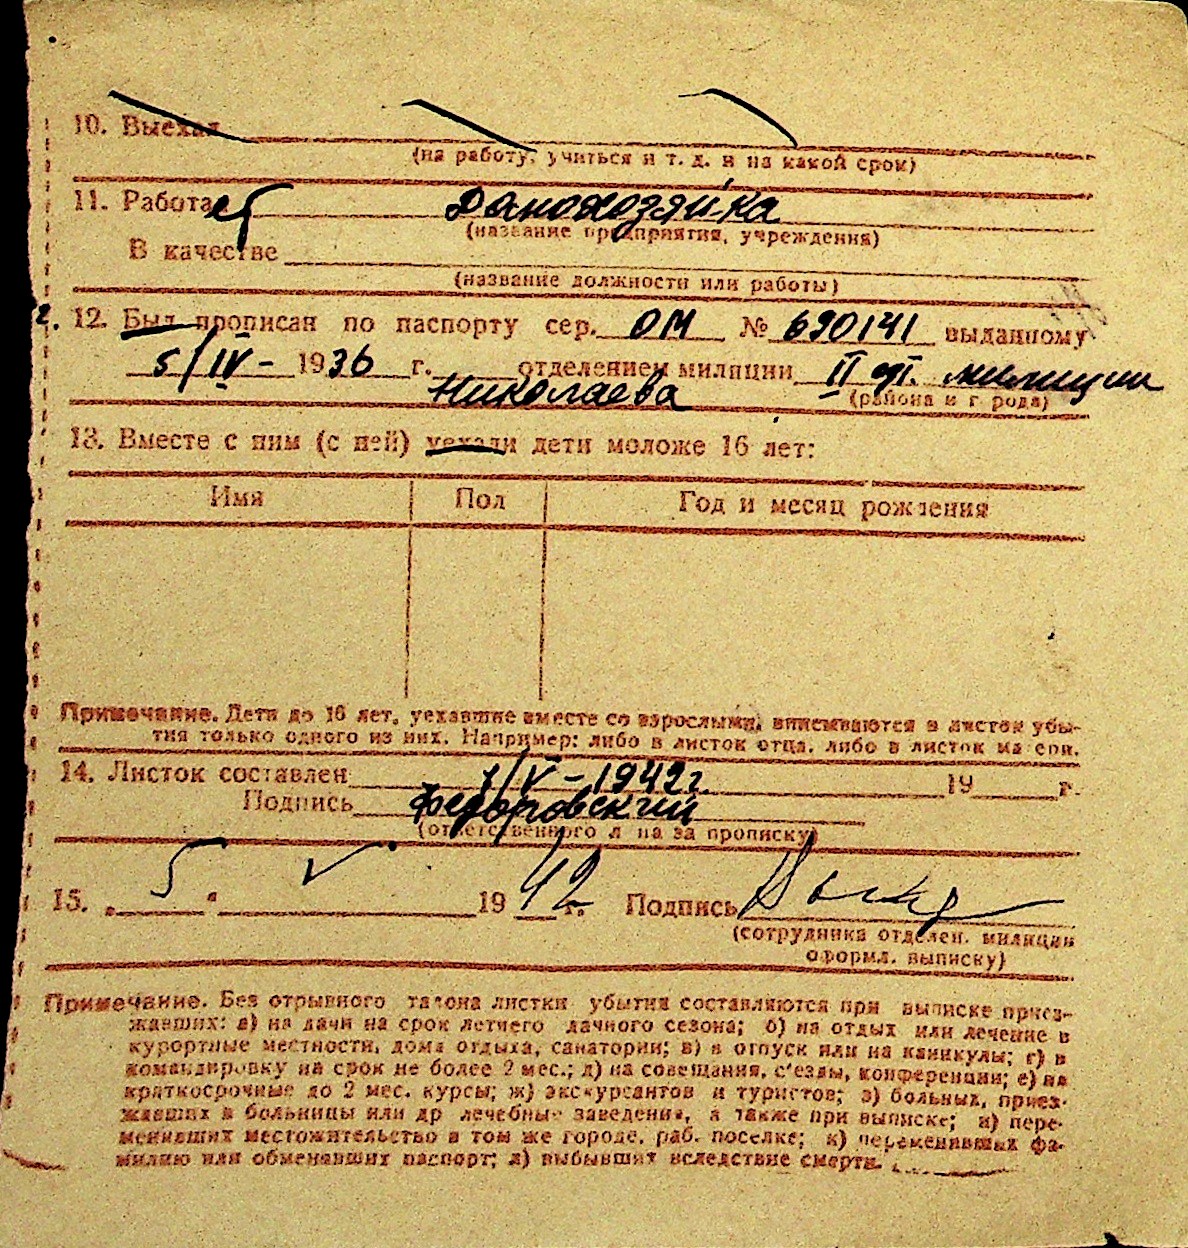 10. Выехал
(на работу, учиться и т. д. и на какой срок)
11. Работает Домохозяйка
(название предприятия, учреждения)
В качестве
(название должности или работы)
12. Был прописан по паспорту сер. ОМ № 690141 выданному
5/IV - 1936 г. отделением милиции II от. милиции
Николаева
(района и города)
13. Вместе с ним (с ней) уехали дети моложе 16 лет:
Имя Пол Год и месяц рождения
Примечание. Дети до 16 лет, уехавшие вместе со взрослыми, вписываются в листок убы-
тия только одного из них. Например: либо в листок отца, либо в листок матери.
14. Листок составлен 1/V - 1942 г. 19 г.
Подпись Федоровский
(ответственного лица за прописку)
15. „5“ V 1942 г. Подпись
(сотрудника отделен. милиции
оформл. выписку)
Примечание. Без отрывного талона листки убытия составляются при выписке приез-
жавших: а) на дачи на срок летнего дачного сезона; б) на отдых или лечение в
курортные местности, дома отдыха, санатории; в) в отпуск или на каникулы; г) в
командировку на срок не более 2 мес.; д) на совещания, с'езды, конференции; е) на
краткосрочные до 2 мес. курсы; ж) экскурсантов и туристов; з) больных, приез-
жавших в больницы или др лечебные заведения, а также при выписке; и) пере-
менивших местожительство в том же городе, раб. поселке; к) переменивших фа-
милию или обменявших паспорт; л) выбывших вследствие смерти.